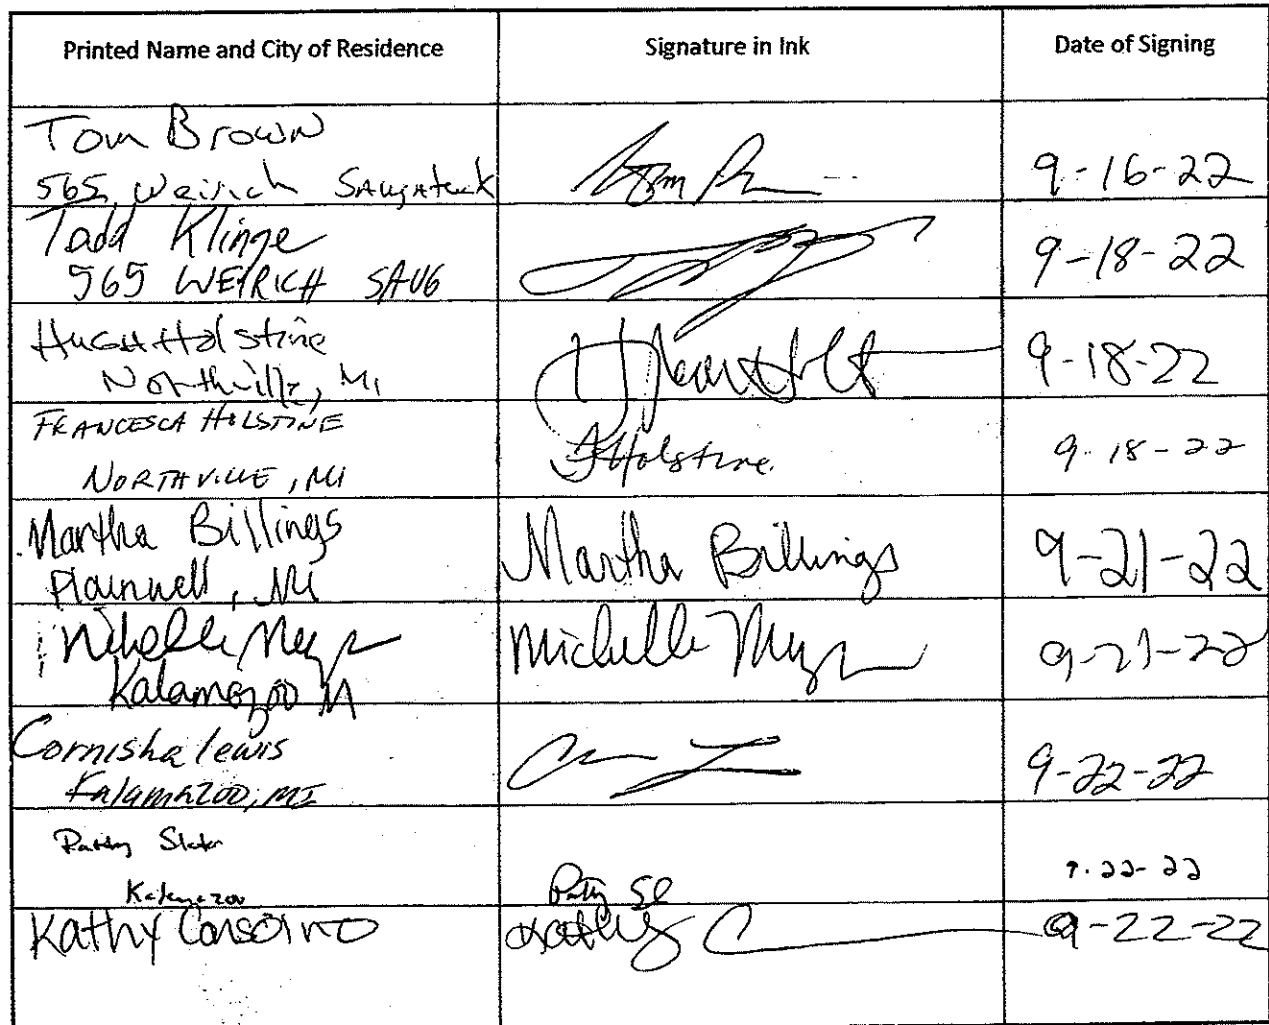 Printed Name and City of Residence
Signature in Ink
Date of Signing
Tom Brown
565 Weirich Saugatuck
Tom
9-16-22
Tadd Klinge
565 WEIRICH SAUG
9-18-22
Hugh Holstine
Northville, MI
9-18-22
FRANCESCA HOLSTINE
NORTHVILLE, MI
FHolstine
9-18-22
Martha Billings
Plainwell, MI
Martha Billings
9-21-22
Michelle
Kalamazoo M
Michelle
9-21-22
Cornisha lewis
Kalamazoo, MI
9-22-22
Patty
Kalamazoo
Patty
9-22-22
Kathy
Kathy C
9-22-22